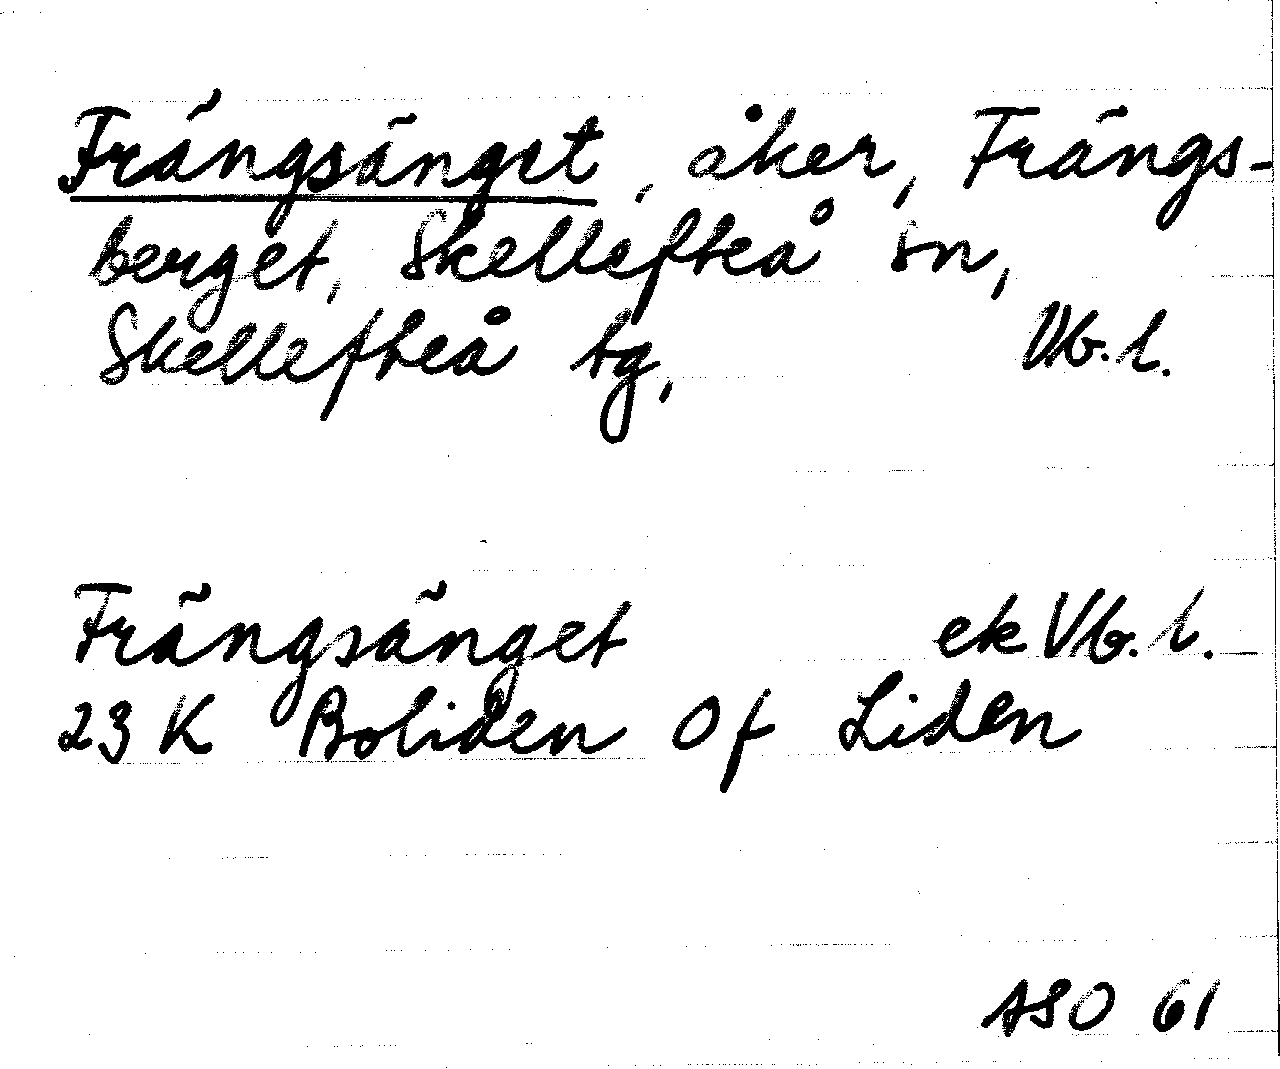 Frängsänget, åker, Frängs-
berget, Skellefteå sn,
Skellefteå tg, Vb. l.
Frängsänget ek Vb. l.
23 K Boliden 0f Liden
ASO 61